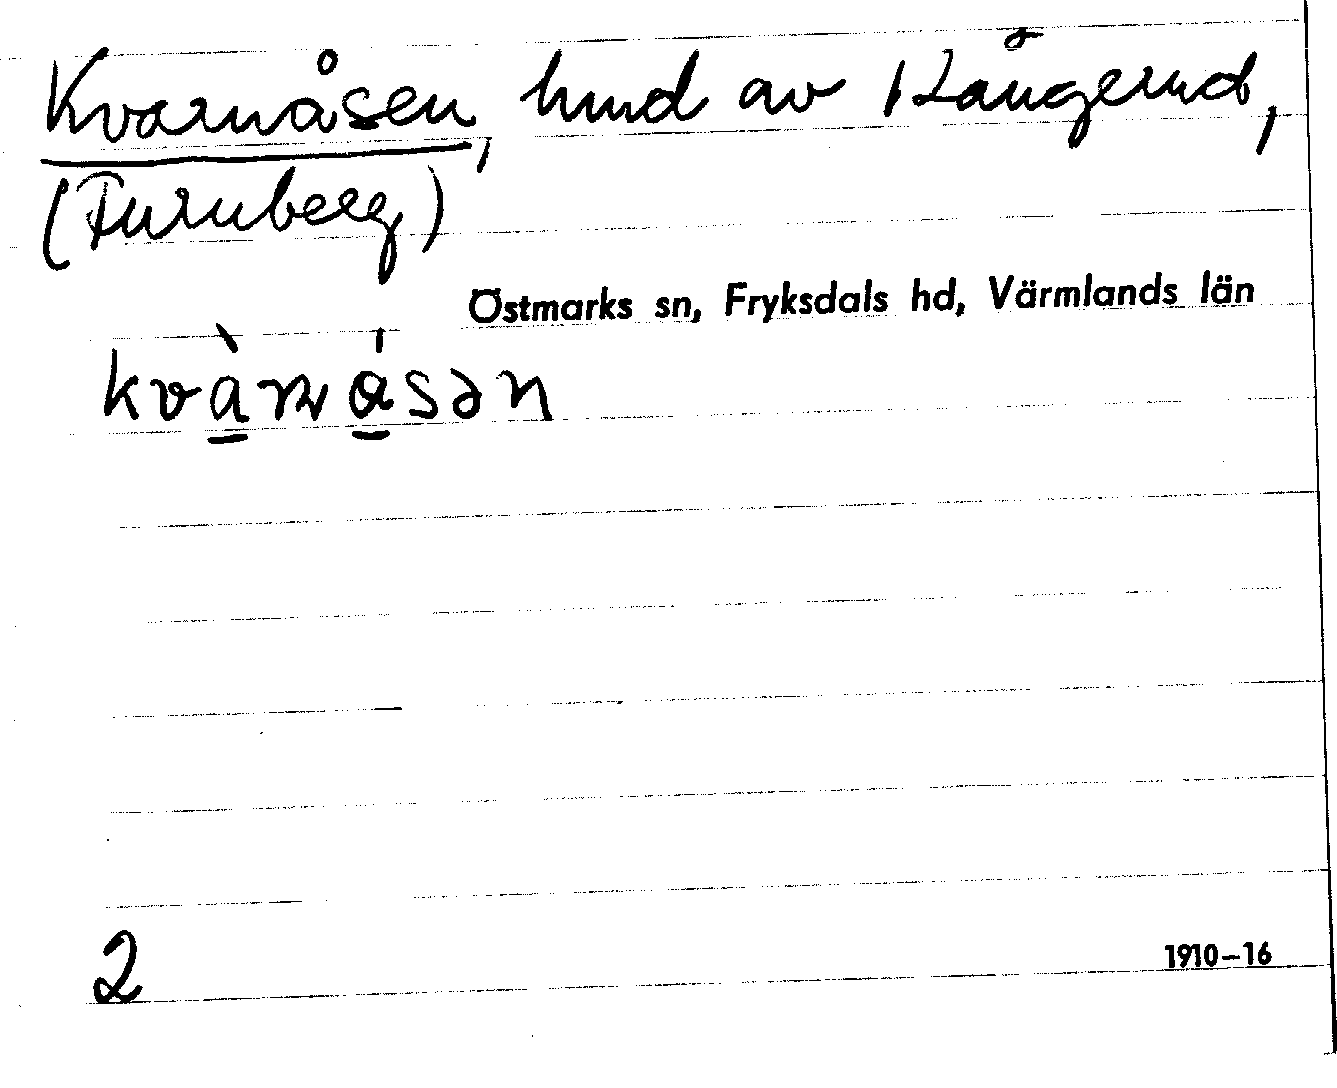 Kvarnåsen, hmd av 1 Långerud,
(Furuberg)
Östmarks sn, Fryksdals hd, Värmlands län
2
1910–16